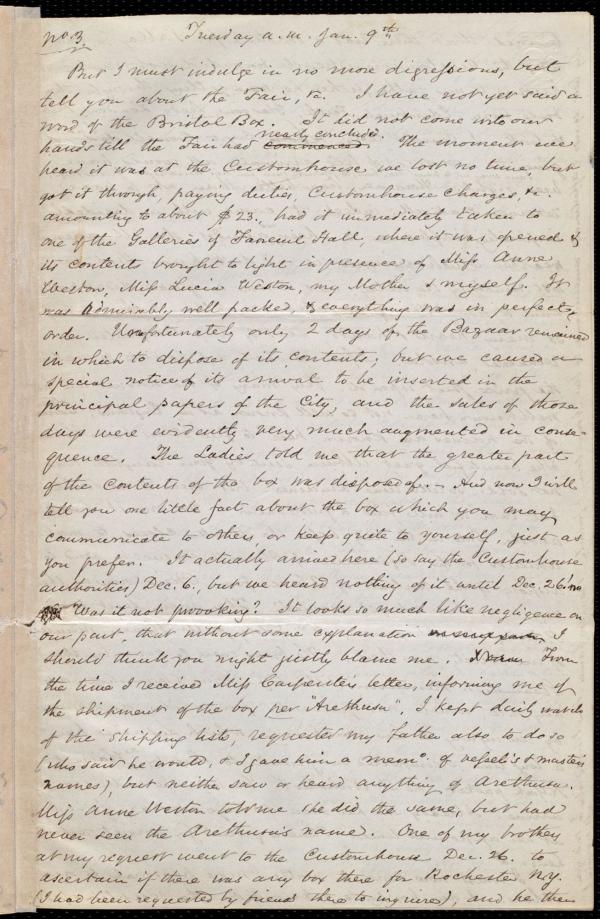 No 3. Tuesday a.m. Jan. 9th
But I must indulge in no more digressions, but
tell you about the Fair, &c. I have not yet said a
word of the Bristol Box. It did not come into our
hands till the Fair had commenced nearly concluded. The moment we
heard it was at the Customhouse we lost no time, but
got it through, paying duties, Customhouse charges, &c.
amounting to about $23., had it immediately taken to
one of the Galleries of Faneuil Hall, where it was opened &
its contents brought to light in presence of Miss Anne
Weston, Miss Lucia Weston, my Mother & myself. It
was admirably well packed, & everything was in perfect
order. Unfortunately only 2 days of the Bazaar remained
in which to dispose of its contents; but we caused a
special notice of its arrival to be inserted in the
principal papers of the City, and the sales of those
days were evidently very much augmented in conse-
quence. The Ladies told me that the greater part
of the contents of the box was disposed of. – And now I will
tell you one little fact about the box which you may
communicate to others, or keep quite to yourself, just as
you prefer. It actually arrived here (so say the Customhouse
authorities) Dec. 6., but we heard nothing of it until Dec. 26.
Was it not provoking? It looks so much like negligence on
our part, that without some explanation I
should think you might justly blame me. From
the time I received Miss Carpenter's letter, informing me of
the shipment of the box per "Arethusa", I kept daily watch
of the shipping lists, requested my father also to do so
(who said he would, & I gave him a memo. of vessel's & master's
names), but neither saw or heard anything of Arethusa.
Miss Anne Weston told me she did the same, but had
never seen the Arethusa's name. One of my brothers
at my request went to the Customhouse Dec. 26. to
ascertain if there was any box there for Rochester N.Y.
(I had been requested by friends there to inquire), and he then